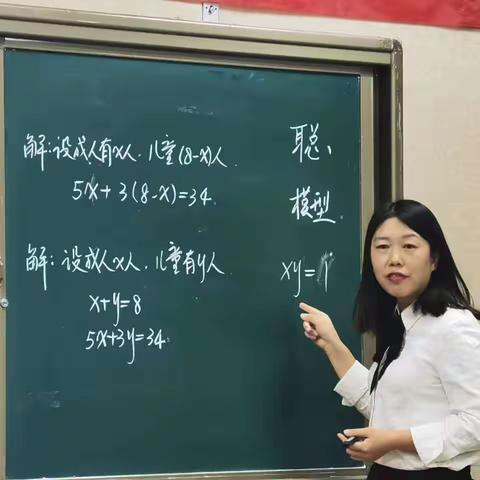 解：设成人有x人，儿童(8-x)人.
5x+3(8-x)=34.
解：设成人x人，儿童有y人
x+y=8
5x+3y=34.
聪、
模型.
xy=1